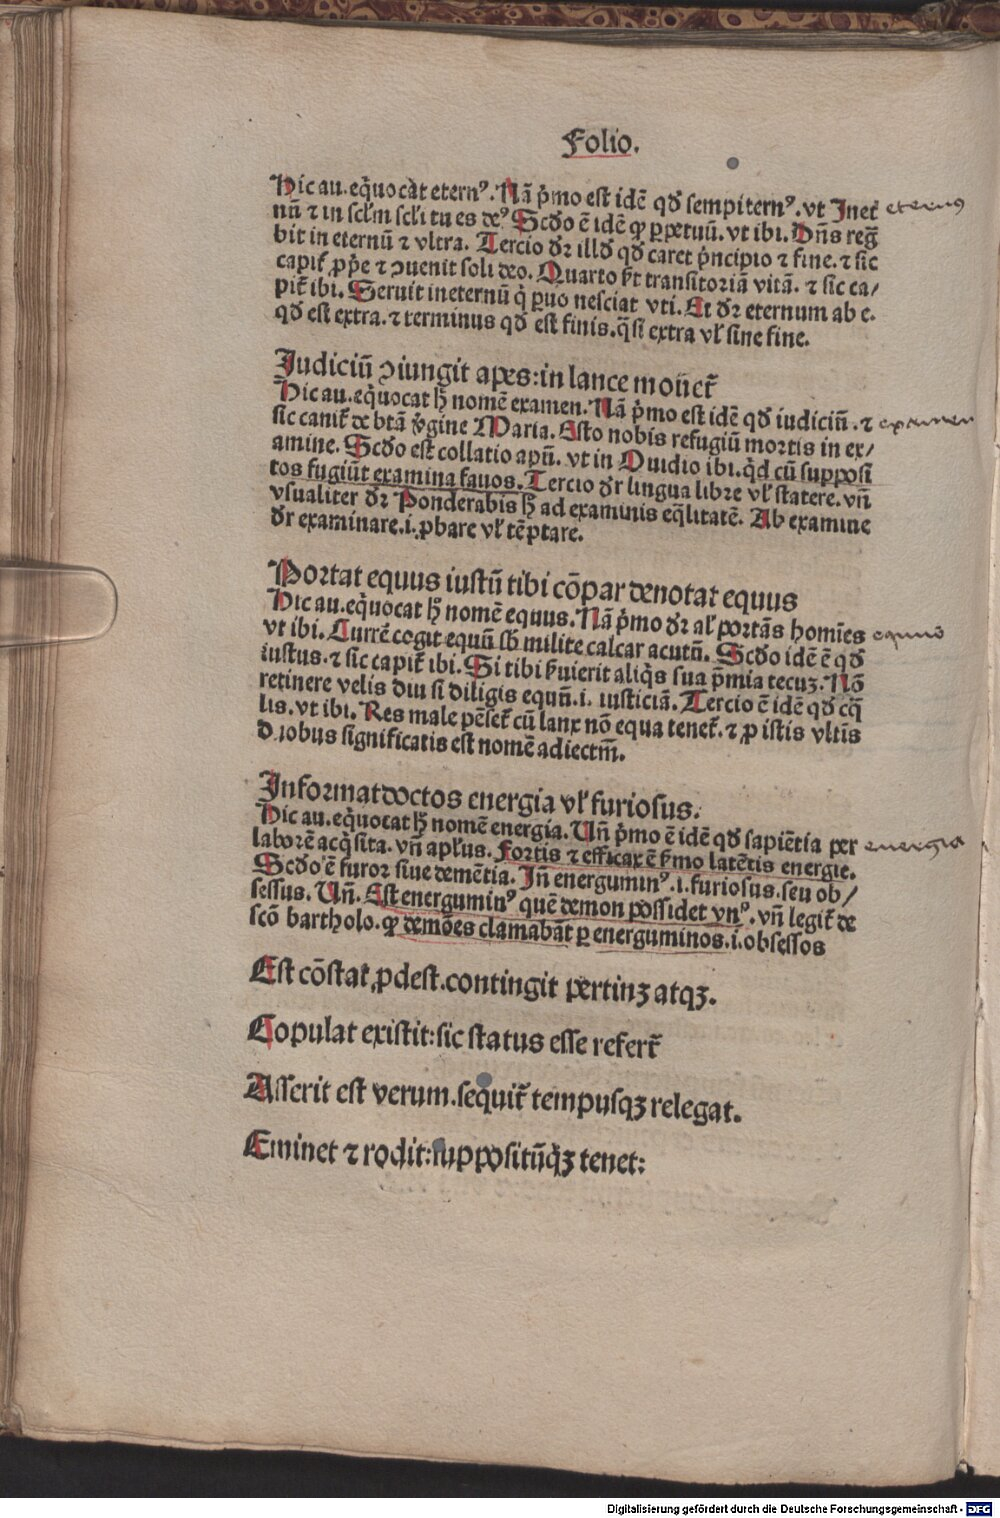 Folio.
Hic au. eq̃uocãt eternꝰ. Nã p̃mo est idẽ qď sempiternꝰ. vt Inet̃ eternus
nũ ⁊ in scl̃m scl̃i tu es deꝰ Scďo ẽ idẽ qꝫ ꝑpetuũ. vt ibi. Dñs reg̃
bit in eternũ ⁊ vltra. Tercio ďr illď qď caret p̃ncipio ⁊ fine. ⁊ sic
capit̃ ꝓp̃e ⁊ ꝯuenit soli deo. Quarto p̃t transitoriã vitã. ⁊ sic ca/
pit̃ ibi. Seruit ineternũ q̃ ꝑuo nesciat vti. Et ďr eternum ab e.
qď est extra. ⁊ terminus qď est finis. q̃si extra vl̃ sine fine.
Judiciũ ꝯiungit apes: in lance mouet̃
Hic au. eq̃uocat h̃ nomẽ examen. Nã p̃mo est idẽ qď iudiciũ. ⁊ examen
sic canit̃ de btã ṽgine Maria. Esto nobis refugiũ mortis in ex/
amine. Scďo est collatio apũ. vt in Ouidio ibi. q̃d cũ supposi
tos fugiũt examina fauos. Tercio ďr lingua libre vl̃ statere. vñ
vsualiter ďr Ponderabis h̃ ad examinis eq̃litatẽ. Ab examine
ďr examinare. i. ꝓbare vl̃ tẽptare.
Portat equus iustũ tibi cõpar denotat equus
Hic au. eq̃uocat h̃ nomẽ equus. Nã p̃mo ďr al̃ portãs homĩes equus
vt ibi. Currẽ cogit equũ sb̃ milite calcar acutũ. Scďo idẽ ẽ qď
iustus. ⁊ sic capit̃ ibi. Si tibi ẽuierit aliq̃s sua p̃mia tecuꝫ. Nõ
retinere velis diu si diligis equũ. i. iusticiã. Tercio ẽ idẽ qď eq̃
lis. vt ibi. Res male pẽset̃ cũ lanx nõ equa tenet̃. ⁊ ꝓ istis vltĩs
duobus significatis est nomẽ adiectm̃.
Informat doctos energia vl̃ furiosus.
Hic au. eq̃uocat h̃ nomẽ energia. Uñ p̃mo ẽ idẽ qď sapiẽtia per energia
laborẽ acq̃sita. vñ apl̃us. Fortis ⁊ efficax ẽ ẽmo latẽtis energie.
Scďo ẽ furor siue demẽtia. Iñ energuminꝰ. i. furiosus. seu ob/
sessus. Uñ. Est energuminꝰ quẽ demon possidet vnꝰ. vñ legit̃ de
scõ bartholo. qꝫ demões clamabãt ꝑ energuminos. i. obsessos
Est cõstat̃ ꝓdest. contingit pertinꝫ atqꝫ.
Copulat existit: sic status esse refert̃
Asserit est verum. sequit̃ tempusqꝫ relegat.
Eminet ⁊ rodit: suppositũq̃ꝫ tenet:
Digitalisierung gefördert durch die Deutsche Forschungsgemeinschaft - DFG